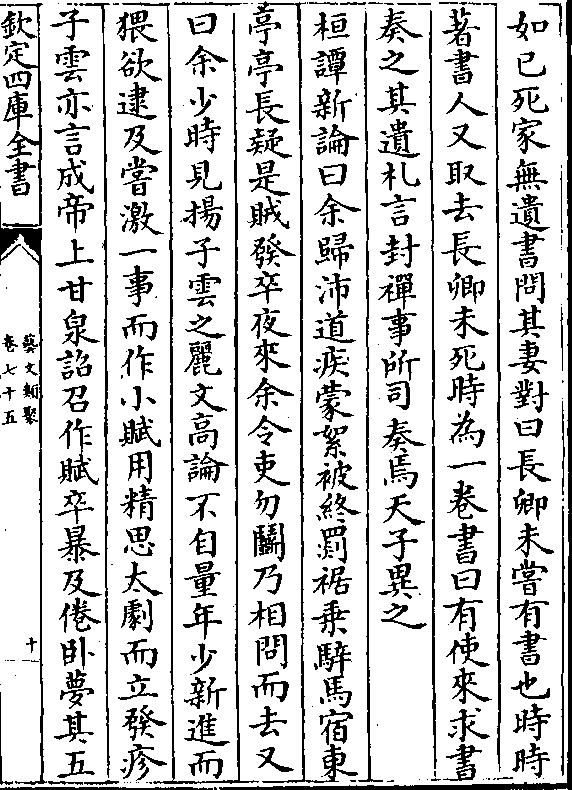 如已死家無遺書問其妻對曰長卿未嘗有書也時時
著書人又取去長卿未死時為一卷書曰有使來求書
奏之其遺札言封禪事所司奏焉天子異之
桓譚新論曰余歸沛道疾蒙絮被終罽裾乗騂馬宿東
葶亭長疑是賊發卒夜來余令吏勿鬭乃相問而去又
曰余少時見揚子雲之麗文高論不自量年少新進而
猥欲逮及嘗激一事而作小賦用精思太劇而立發疹
子雲亦言成帝上甘泉詔召作賦卒暴及倦卧夢其五
欽定四庫全書
藝文類聚
卷七十五
十